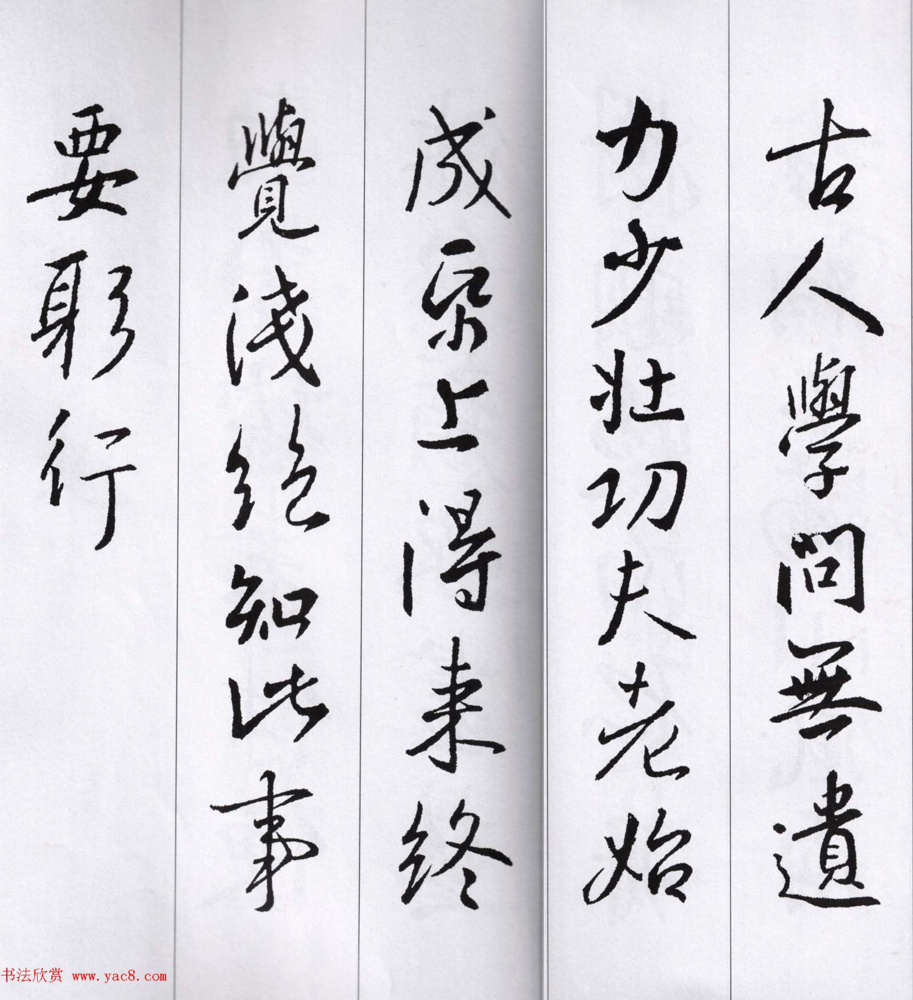 古人學問無遺
力少壯功夫老始
成帋上得来終
覺淺絕知此事
要躬行
书法欣赏 www.yac8.com